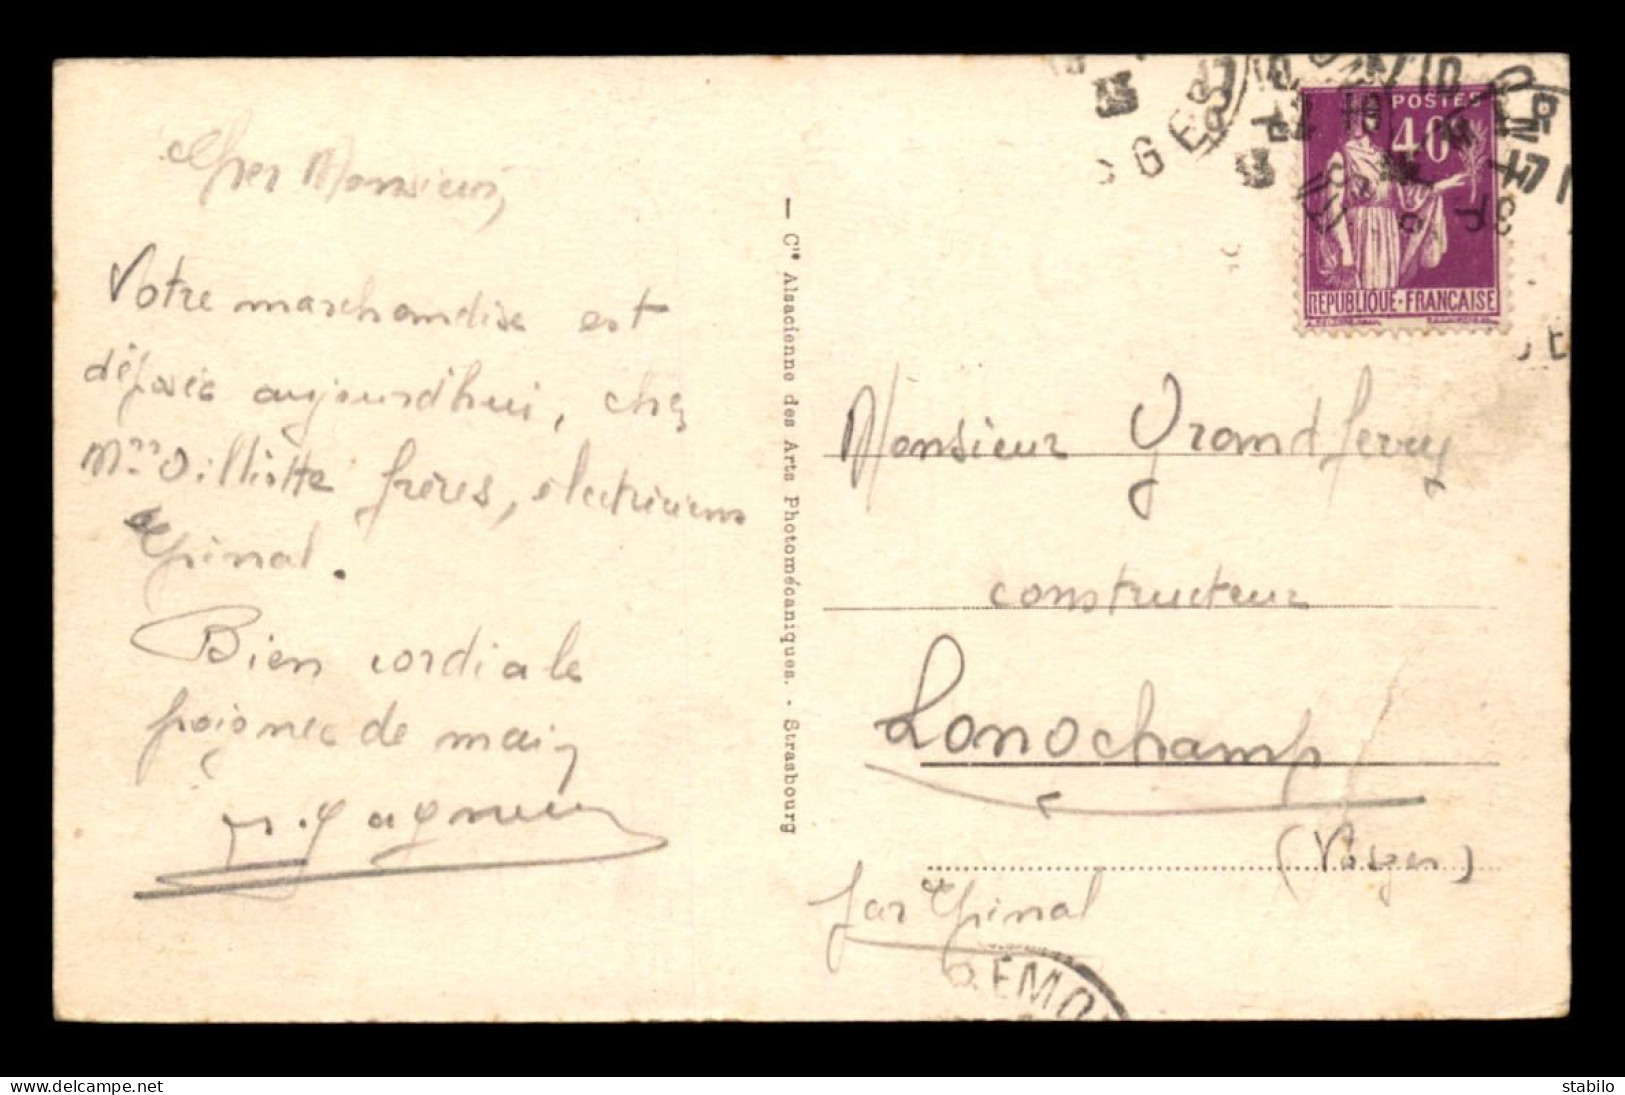 Cher Monsieur,
Votre marchandise est
déposée aujourd'hui, chez
frères, électriciens
Epinal.
Bien cordiale
poignée de main
— Cie Alsacienne des Arts Photomécaniques. - Strasbourg
POSTES
40
REPUBLIQUE·FRANÇAISE
Monsieur Grandferry
constructeur
Longchamp
(Vosges)
par Epinal
REMO